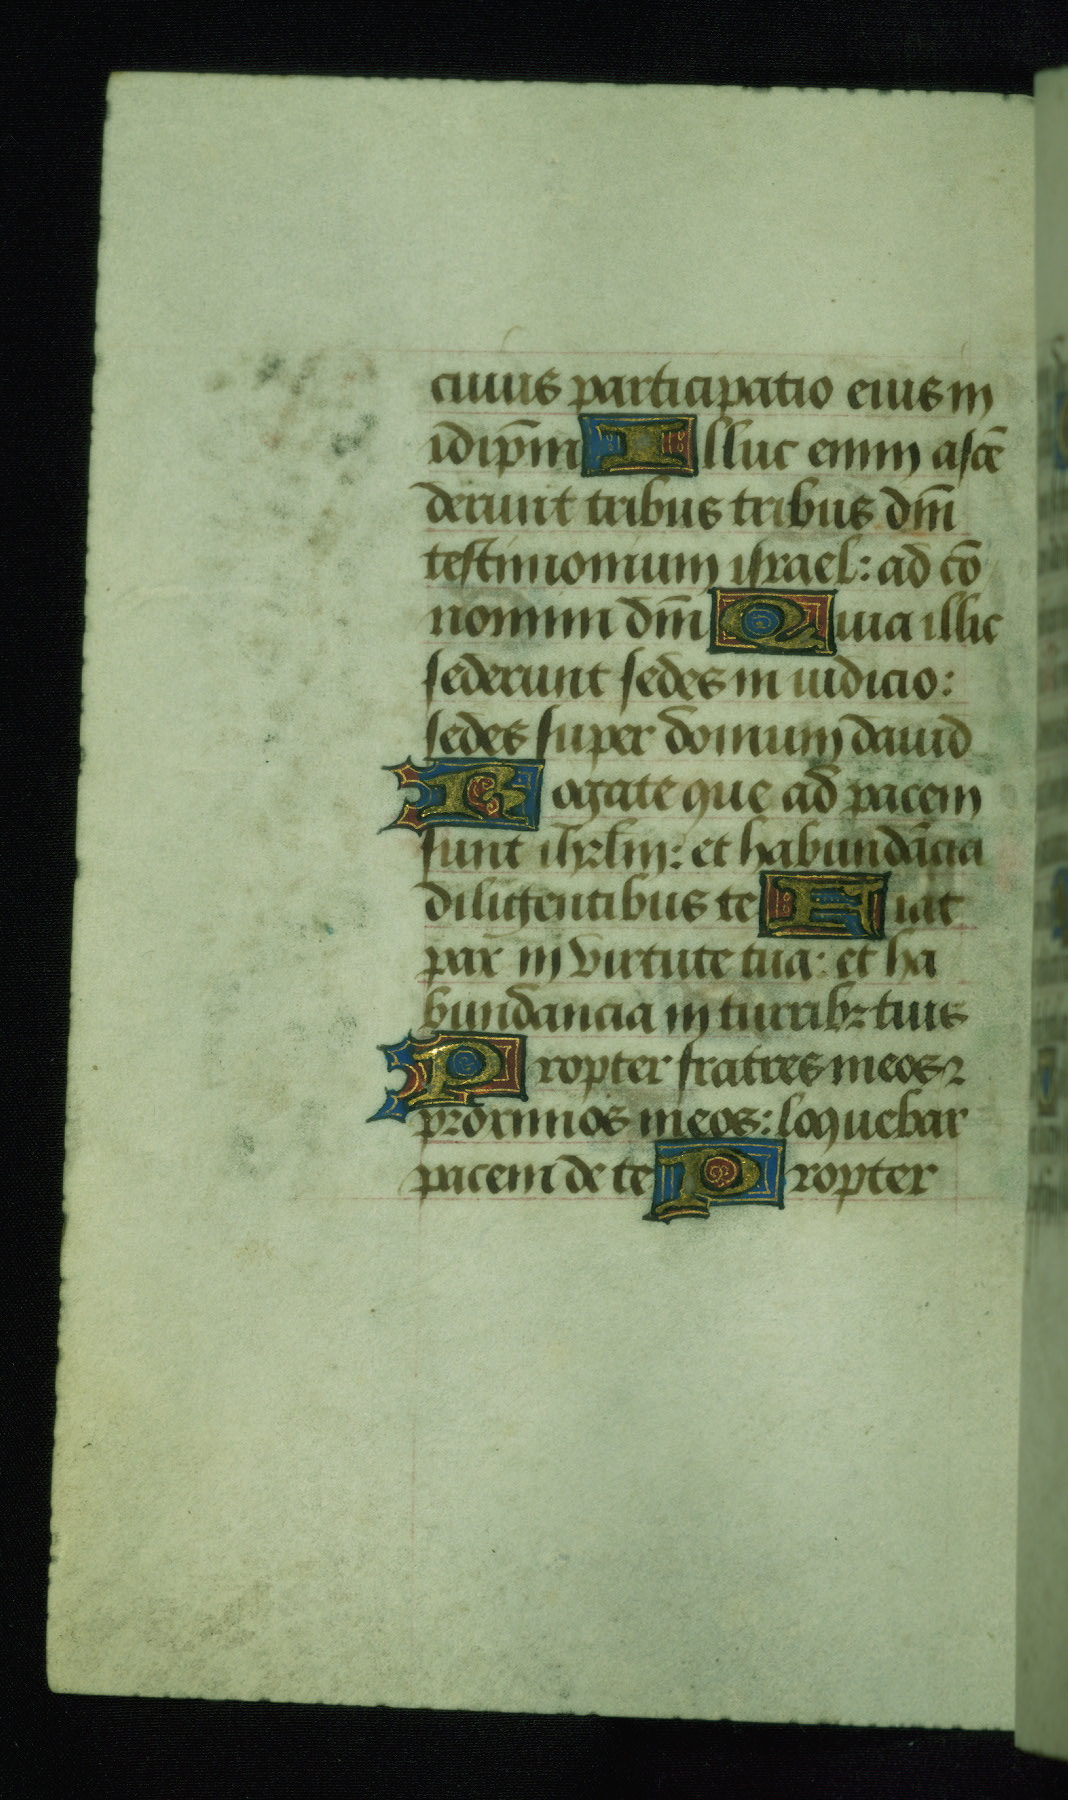 cuius participatio eius in
idip̄m Illuc enim ascē
derunt tribus tribus dn̄i
testimonium israel: ad cō
nomini dn̄i Quia illic
sederunt sedes in iudicio:
sedes super domum dauid
Rogate que ad pacem
sunt ihrlm: et habundācia
diligentibus te Fiat
pax in virtute tua: et ha
bundancia in turribꝫ tuis
Propter fratres meos ⁊
proximos meos: loquebar
pacem de te Propter